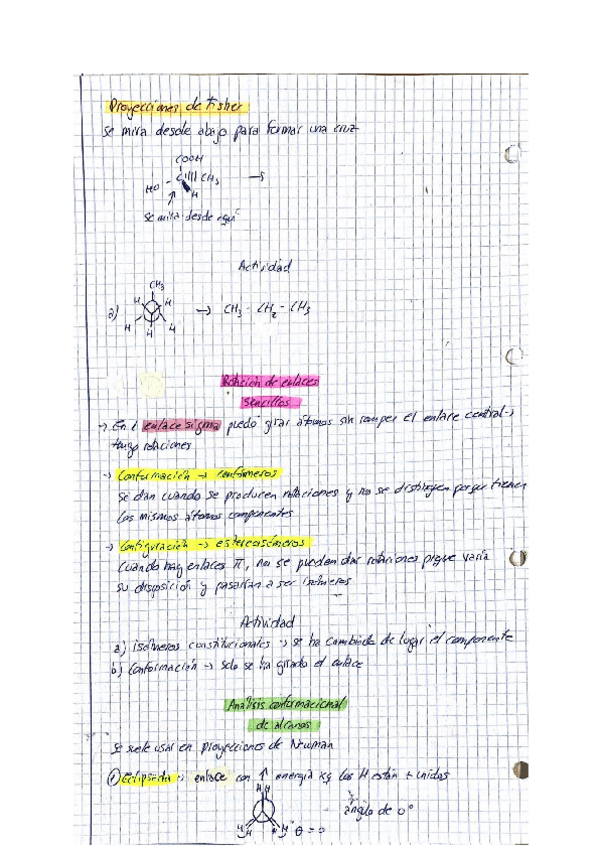 Proyecciones de Fisher
Se mira desde abajo para formar una cruz
COOH
HO - C CH3 → S
H
Se mira desde aquí
Actividad
CH3
a) H H → CH3 - CH2 - CH3
H H
H
Rotación de enlaces
Sencillos
→ En 1 enlace sigma puedo girar átomos sin romper el enlace central →
tengo rotaciones
→ Conformación → confómeros
Se dan cuando se producen rotaciones y no se distinguen porque tienen
los mismos átomos componentes
→ Configuración → estereoisómeros
Cuando hay enlaces π, no se pueden dar rotaciones porque varía
su disposición y pasarían a ser isómeros
Actividad
a) isómeros constitucionales → se ha cambiado de lugar el componente
b) Conformación → Solo se ha girado el enlace
Análisis conformacional
de alcanos
Se suele usar en proyecciones de Newman
① Eclipsada → enlace con ↑ energía xq los H están + unidos
H H
ángulo de 0°
H H H H θ = 0